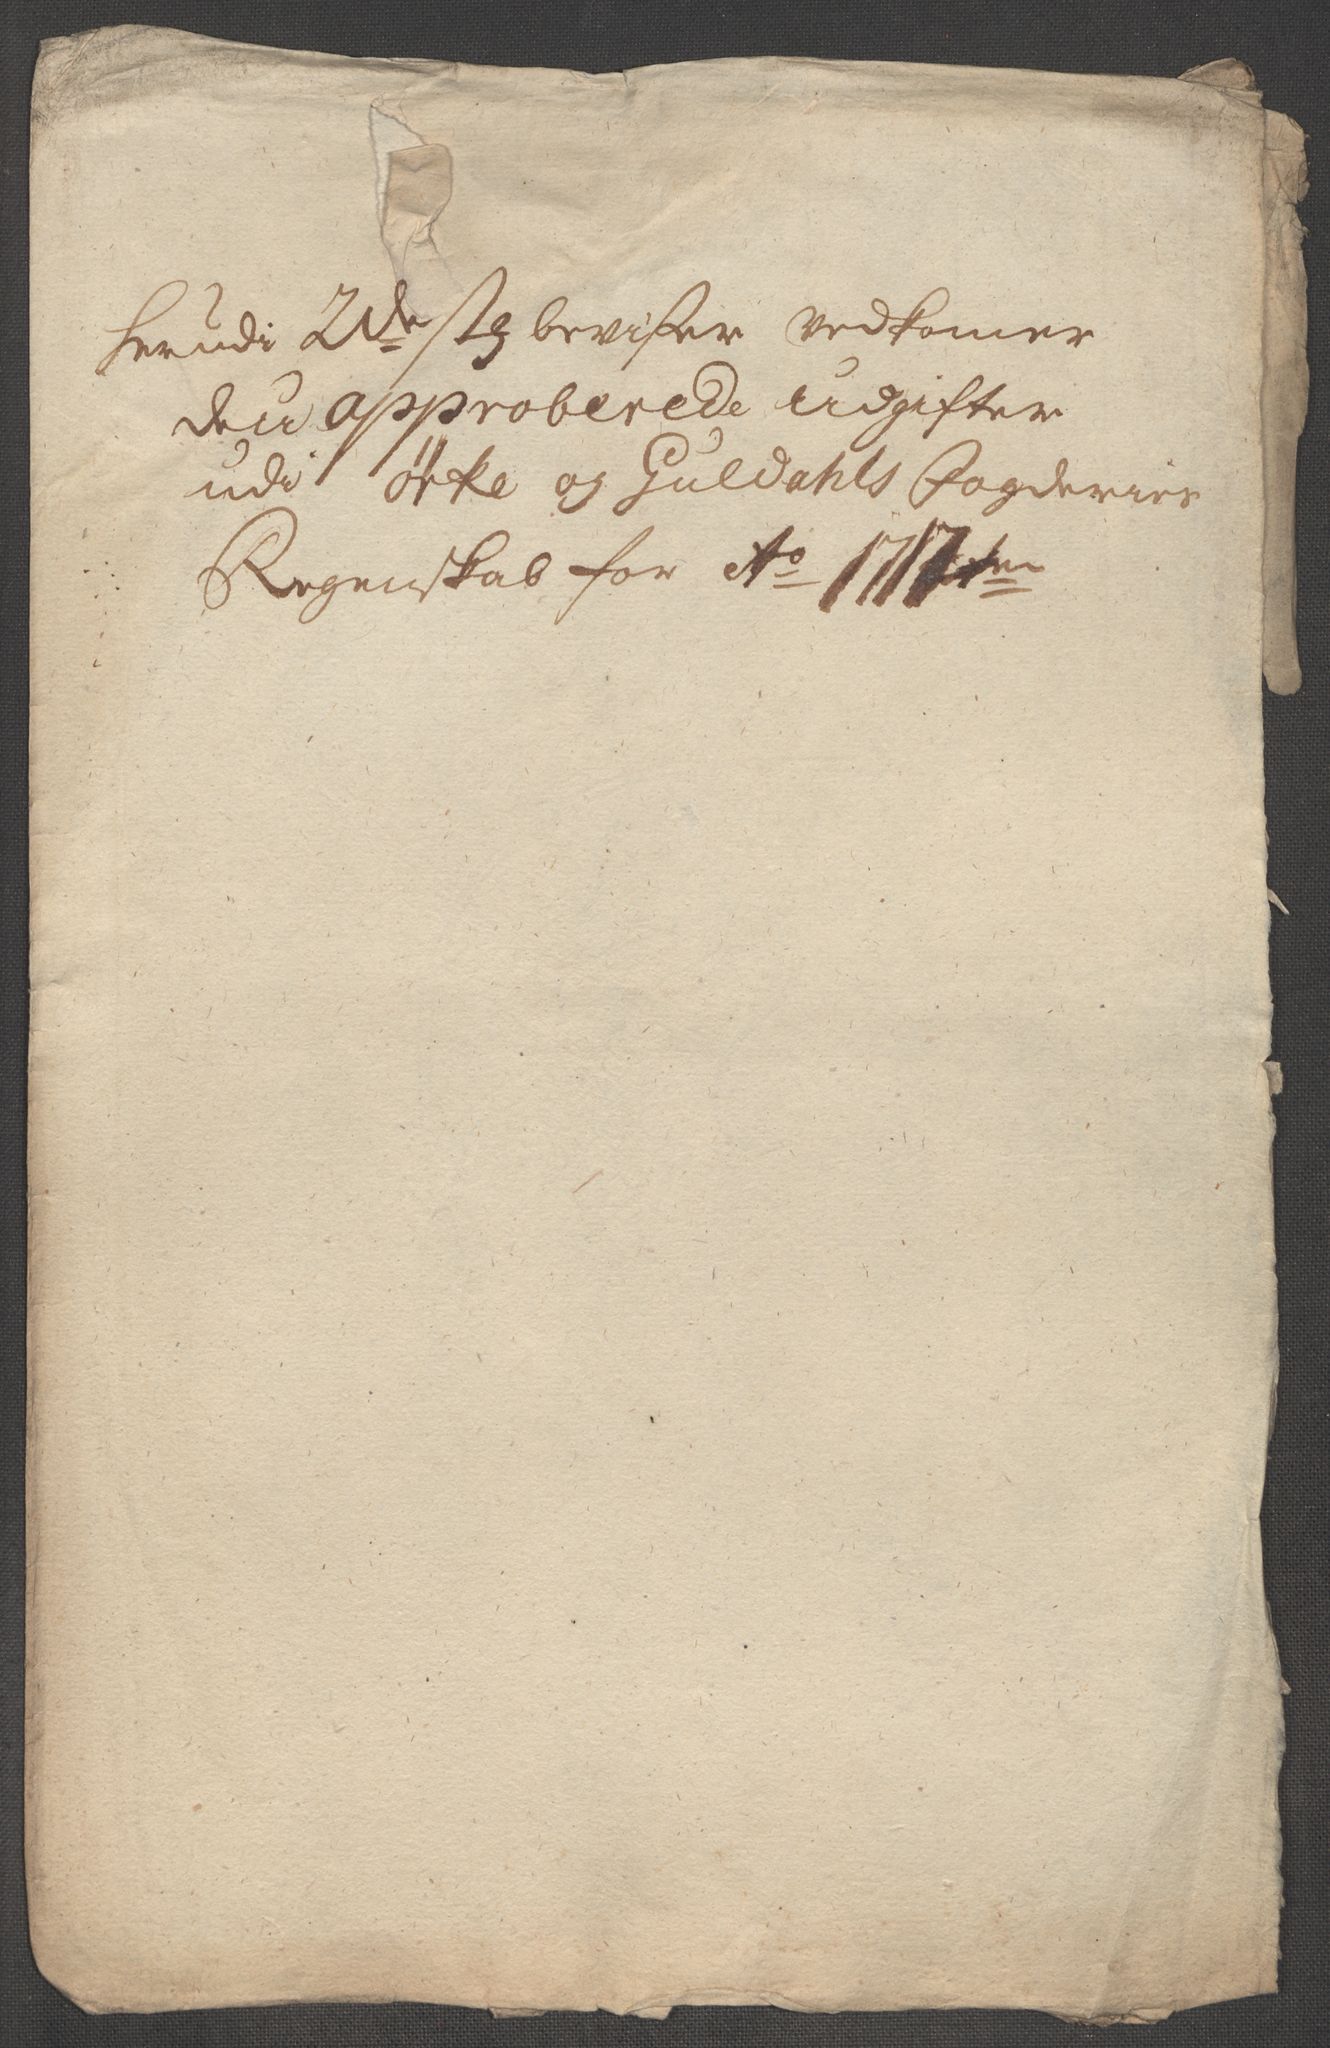 Herudi 2de st beviser vedkomer
den approberede udgifter
udi örke og Guldahls Fogderies
Regenskab for Ao 1717ten